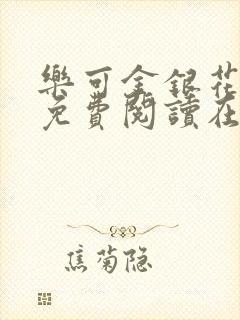 樂可金銀花
免費閱讀在
焦菊隐